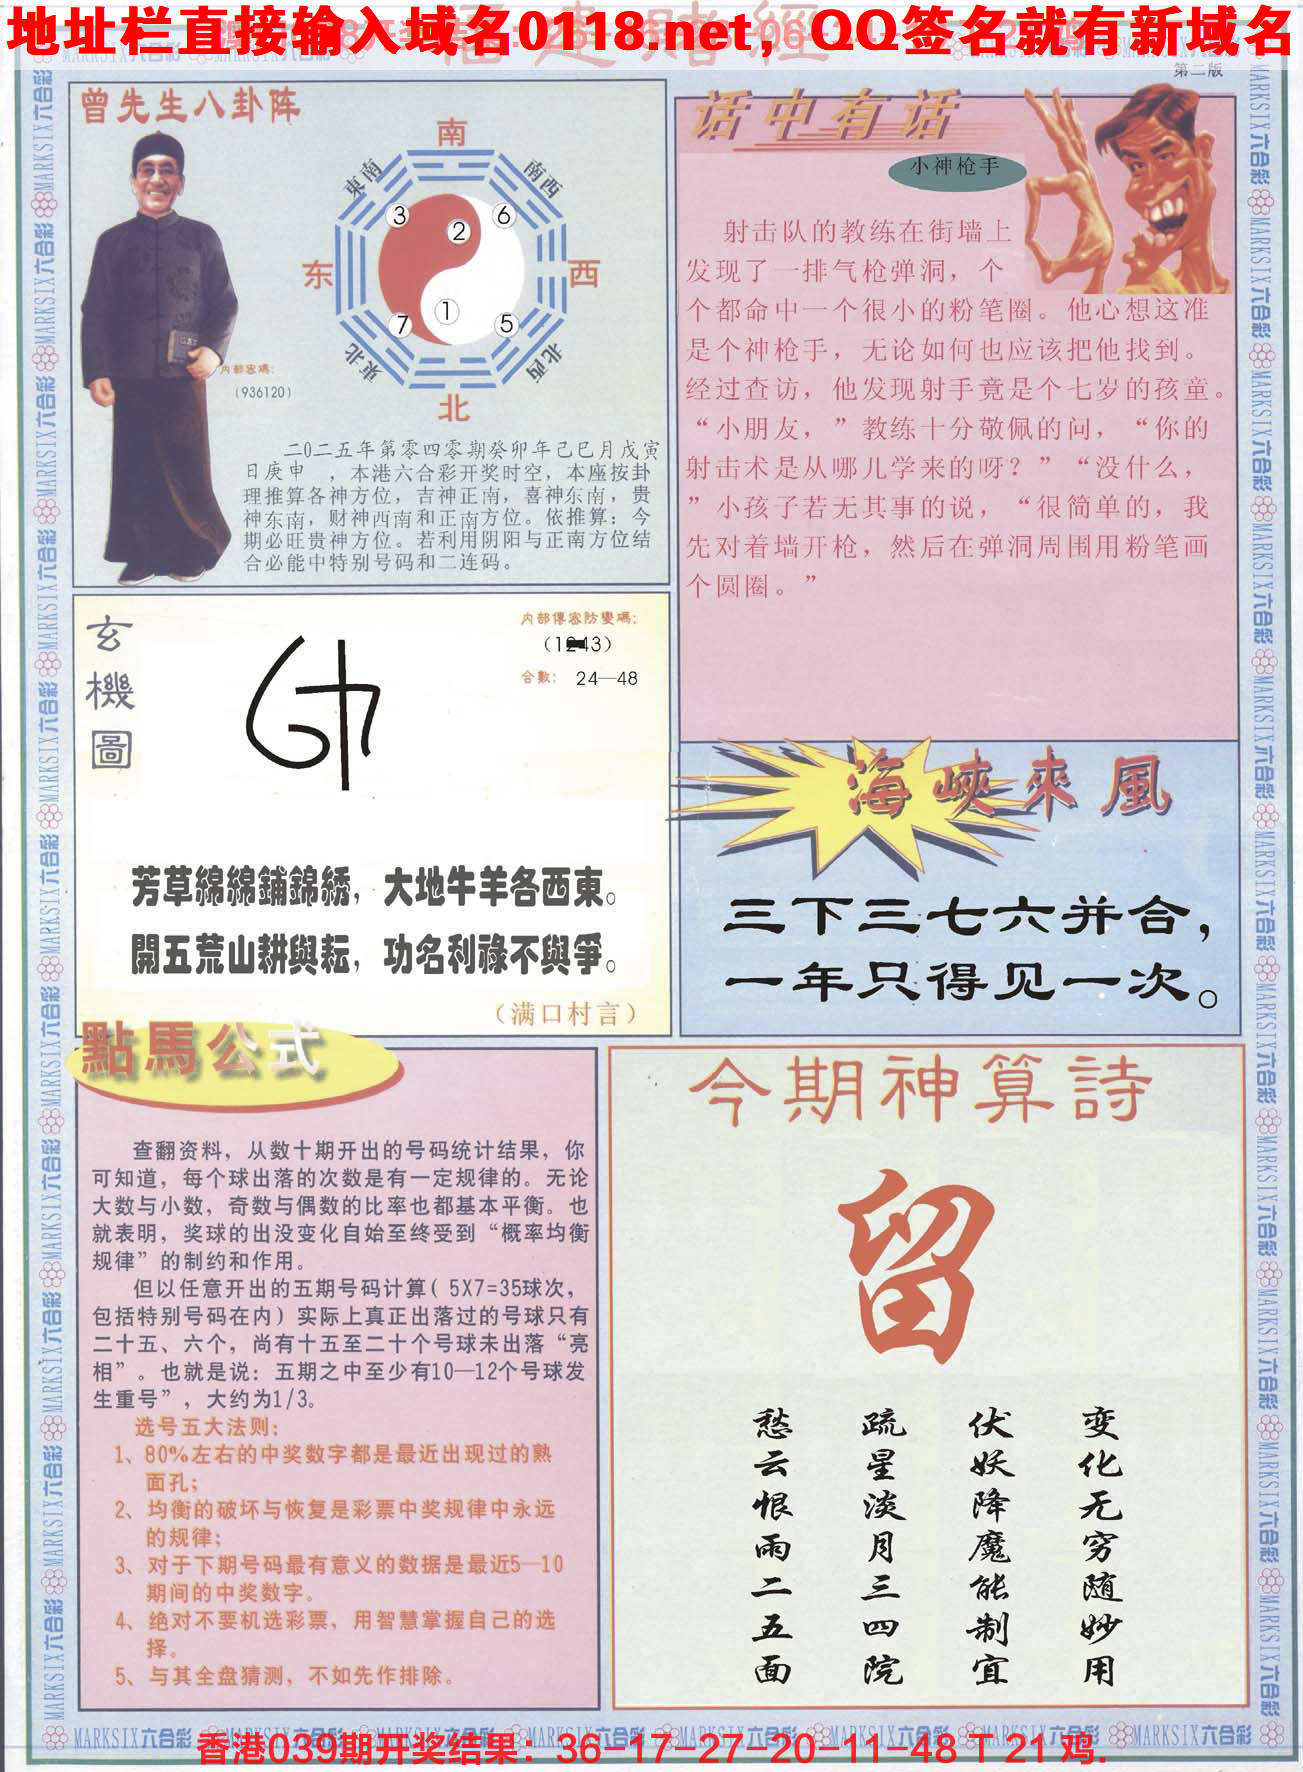 地址栏直接输入域名0118.net，QQ签名就有新域名
第二版
曾先生八卦阵
南
東南
南西
3
2
6
东
西
1
7
5
東北
北西
北
内部密碼：
（936120）
二0二五年第零四零期癸卯年己巳月戊寅
日庚申　，本港六合彩开奖时空，本座按卦
理推算各神方位，吉神正南，喜神东南，贵
神东南，财神西南和正南方位。依推算：今
期必旺贵神方位。若利用阴阳与正南方位结
合必能中特别号码和二连码。
话中有话
小神枪手
射击队的教练在街墙上
发现了一排气枪弹洞，个
个都命中一个很小的粉笔圈。他心想这准
是个神枪手，无论如何也应该把他找到。
经过查访，他发现射手竟是个七岁的孩童。
“小朋友，”教练十分敬佩的问，“你的
射击术是从哪儿学来的呀？”“没什么，
”小孩子若无其事的说，“很简单的，我
先对着墙开枪，然后在弹洞周围用粉笔画
个圆圈。”
玄機圖
内部傳密防變碼：
合數：　24—48
芳草綿綿鋪錦綉，大地牛羊各西東。
開五荒山耕與耘，功名利祿不與爭。
（满口村言）
海峽來風
三下三七六并合，
一年只得见一次。
點馬公式
查翻资料，从数十期开出的号码统计结果，你
可知道，每个球出落的次数是有一定规律的。无论
大数与小数，奇数与偶数的比率也都基本平衡。也
就表明，奖球的出没变化自始至终受到“概率均衡
规律”的制约和作用。
但以任意开出的五期号码计算( 5X7=35球次，
包括特别号码在内）实际上真正出落过的号球只有
二十五、六个，尚有十五至二十个号球未出落“亮
相”。也就是说：五期之中至少有10—12个号球发
生重号”，大约为1/3。
选号五大法则：
1、80%左右的中奖数字都是最近出现过的熟
面孔；
2、均衡的破坏与恢复是彩票中奖规律中永远
的规律；
3、对于下期号码最有意义的数据是最近5—10
期间的中奖数字。
4、绝对不要机选彩票，用智慧掌握自己的选
择。
5、与其全盘猜测，不如先作排除。
今期神算詩
留
变化无穷随妙用
伏妖降魔能制宜
疏星淡月三四院
愁云恨雨二五面
MARKSIX六合彩
香港039期开奖结果：36-17-27-20-11-48 T 21 鸡.